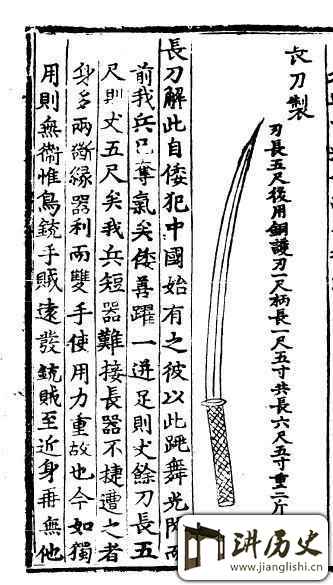 長刀製
刃長五尺後用銅護刃一尺柄長一尺五寸共長六尺五寸重二斤
長刀解此自倭犯中國始有之彼以此跳舞光閃而
前我兵已奪氣矣倭善躍一迸足則丈餘刀長五
尺則丈五尺矣我兵短器難接長器不捷遭之者
身多兩斷緣器利而雙手使用力重故也今如獨
用則無衛惟鳥銃手賊遠發銃賊至近身再無他
讲历史
www.jianglishi.cn